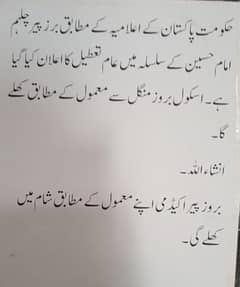 حکومت پاکستان کے اعلامیہ کے مطابق برز پیر چہلم
امام حسین کے سلسلہ میں عام تعطیل کا اعلان کیا گیا
ہے۔ اسکول بروز منگل سے معمول کے مطابق کھلے
گا۔
انشاء اللہ۔
بروز پیر اکیڈمی اپنے معمول کے مطابق شام میں
کھلے گی۔